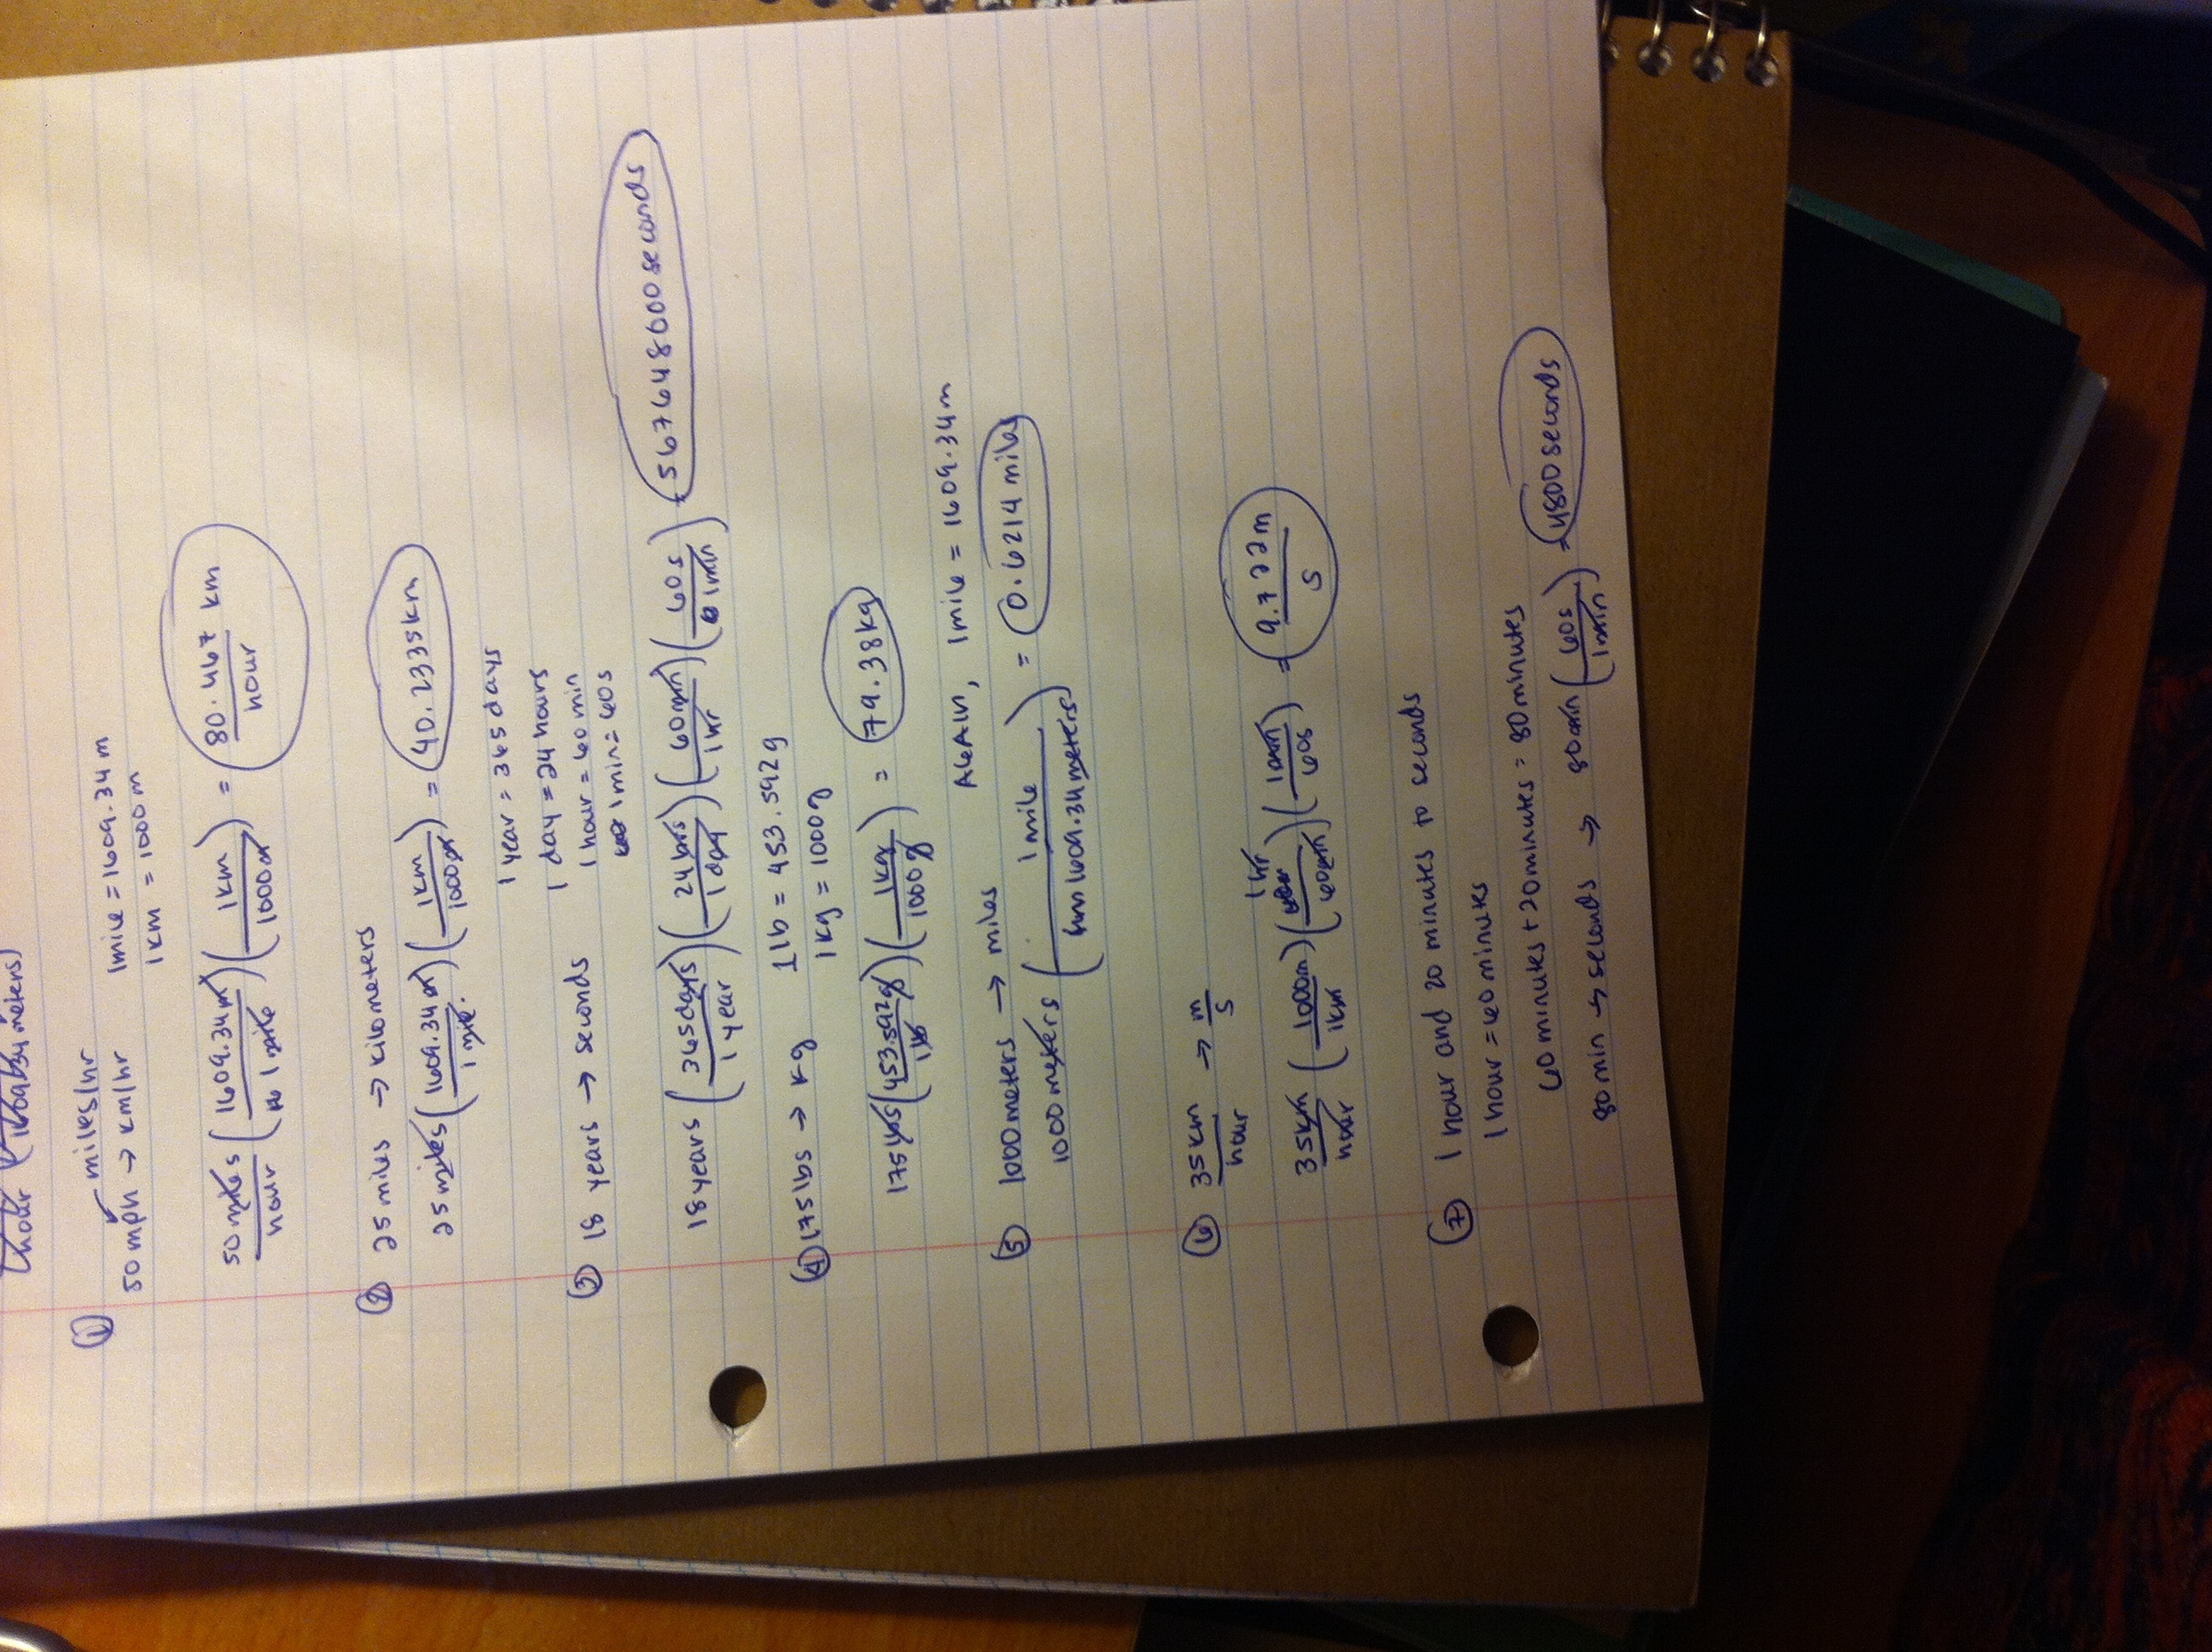 1 hour (1609.34 meters)
① miles/hr
50 mph → km/hr 1 mile = 1609.34 m
1 km = 1000 m
50 miles/hour (1609.34 m/1 mile)(1 km/1000 m) = 80.467 km/hour
② 25 miles → kilometers
25 miles (1609.34 m/1 mile.)(1 km/1000 m) = 40.2335 km
1 year = 365 days
③ 18 years → seconds 1 day = 24 hours
1 hour = 60 min
1 min = 60 s
18 years (365 days/1 year)(24 hrs/1 day)(60 min/1 hr)(60 s/1 min) = 567648000 seconds
④ 175 lbs → kg 1 lb = 453.592 g
1 kg = 1000 g
175 lbs (453.592 g/1 lb)(1 kg/1000 g) = 79.38 kg
⑤ 1000 meters → miles AGAIN, 1 mile = 1609.34 m
1000 meters (1 mile/1609.34 meters) = 0.6214 miles
⑥ 35 km/hour → m/s
35 km/hour (1000 m/1 km)(1 hr/60 min)(1 min/60 s) = 9.722 m/s
⑦ 1 hour and 20 minutes to seconds
1 hour = 60 minutes
60 minutes + 20 minutes = 80 minutes
80 min → seconds → 80 min (60 s/1 min) = 4800 seconds